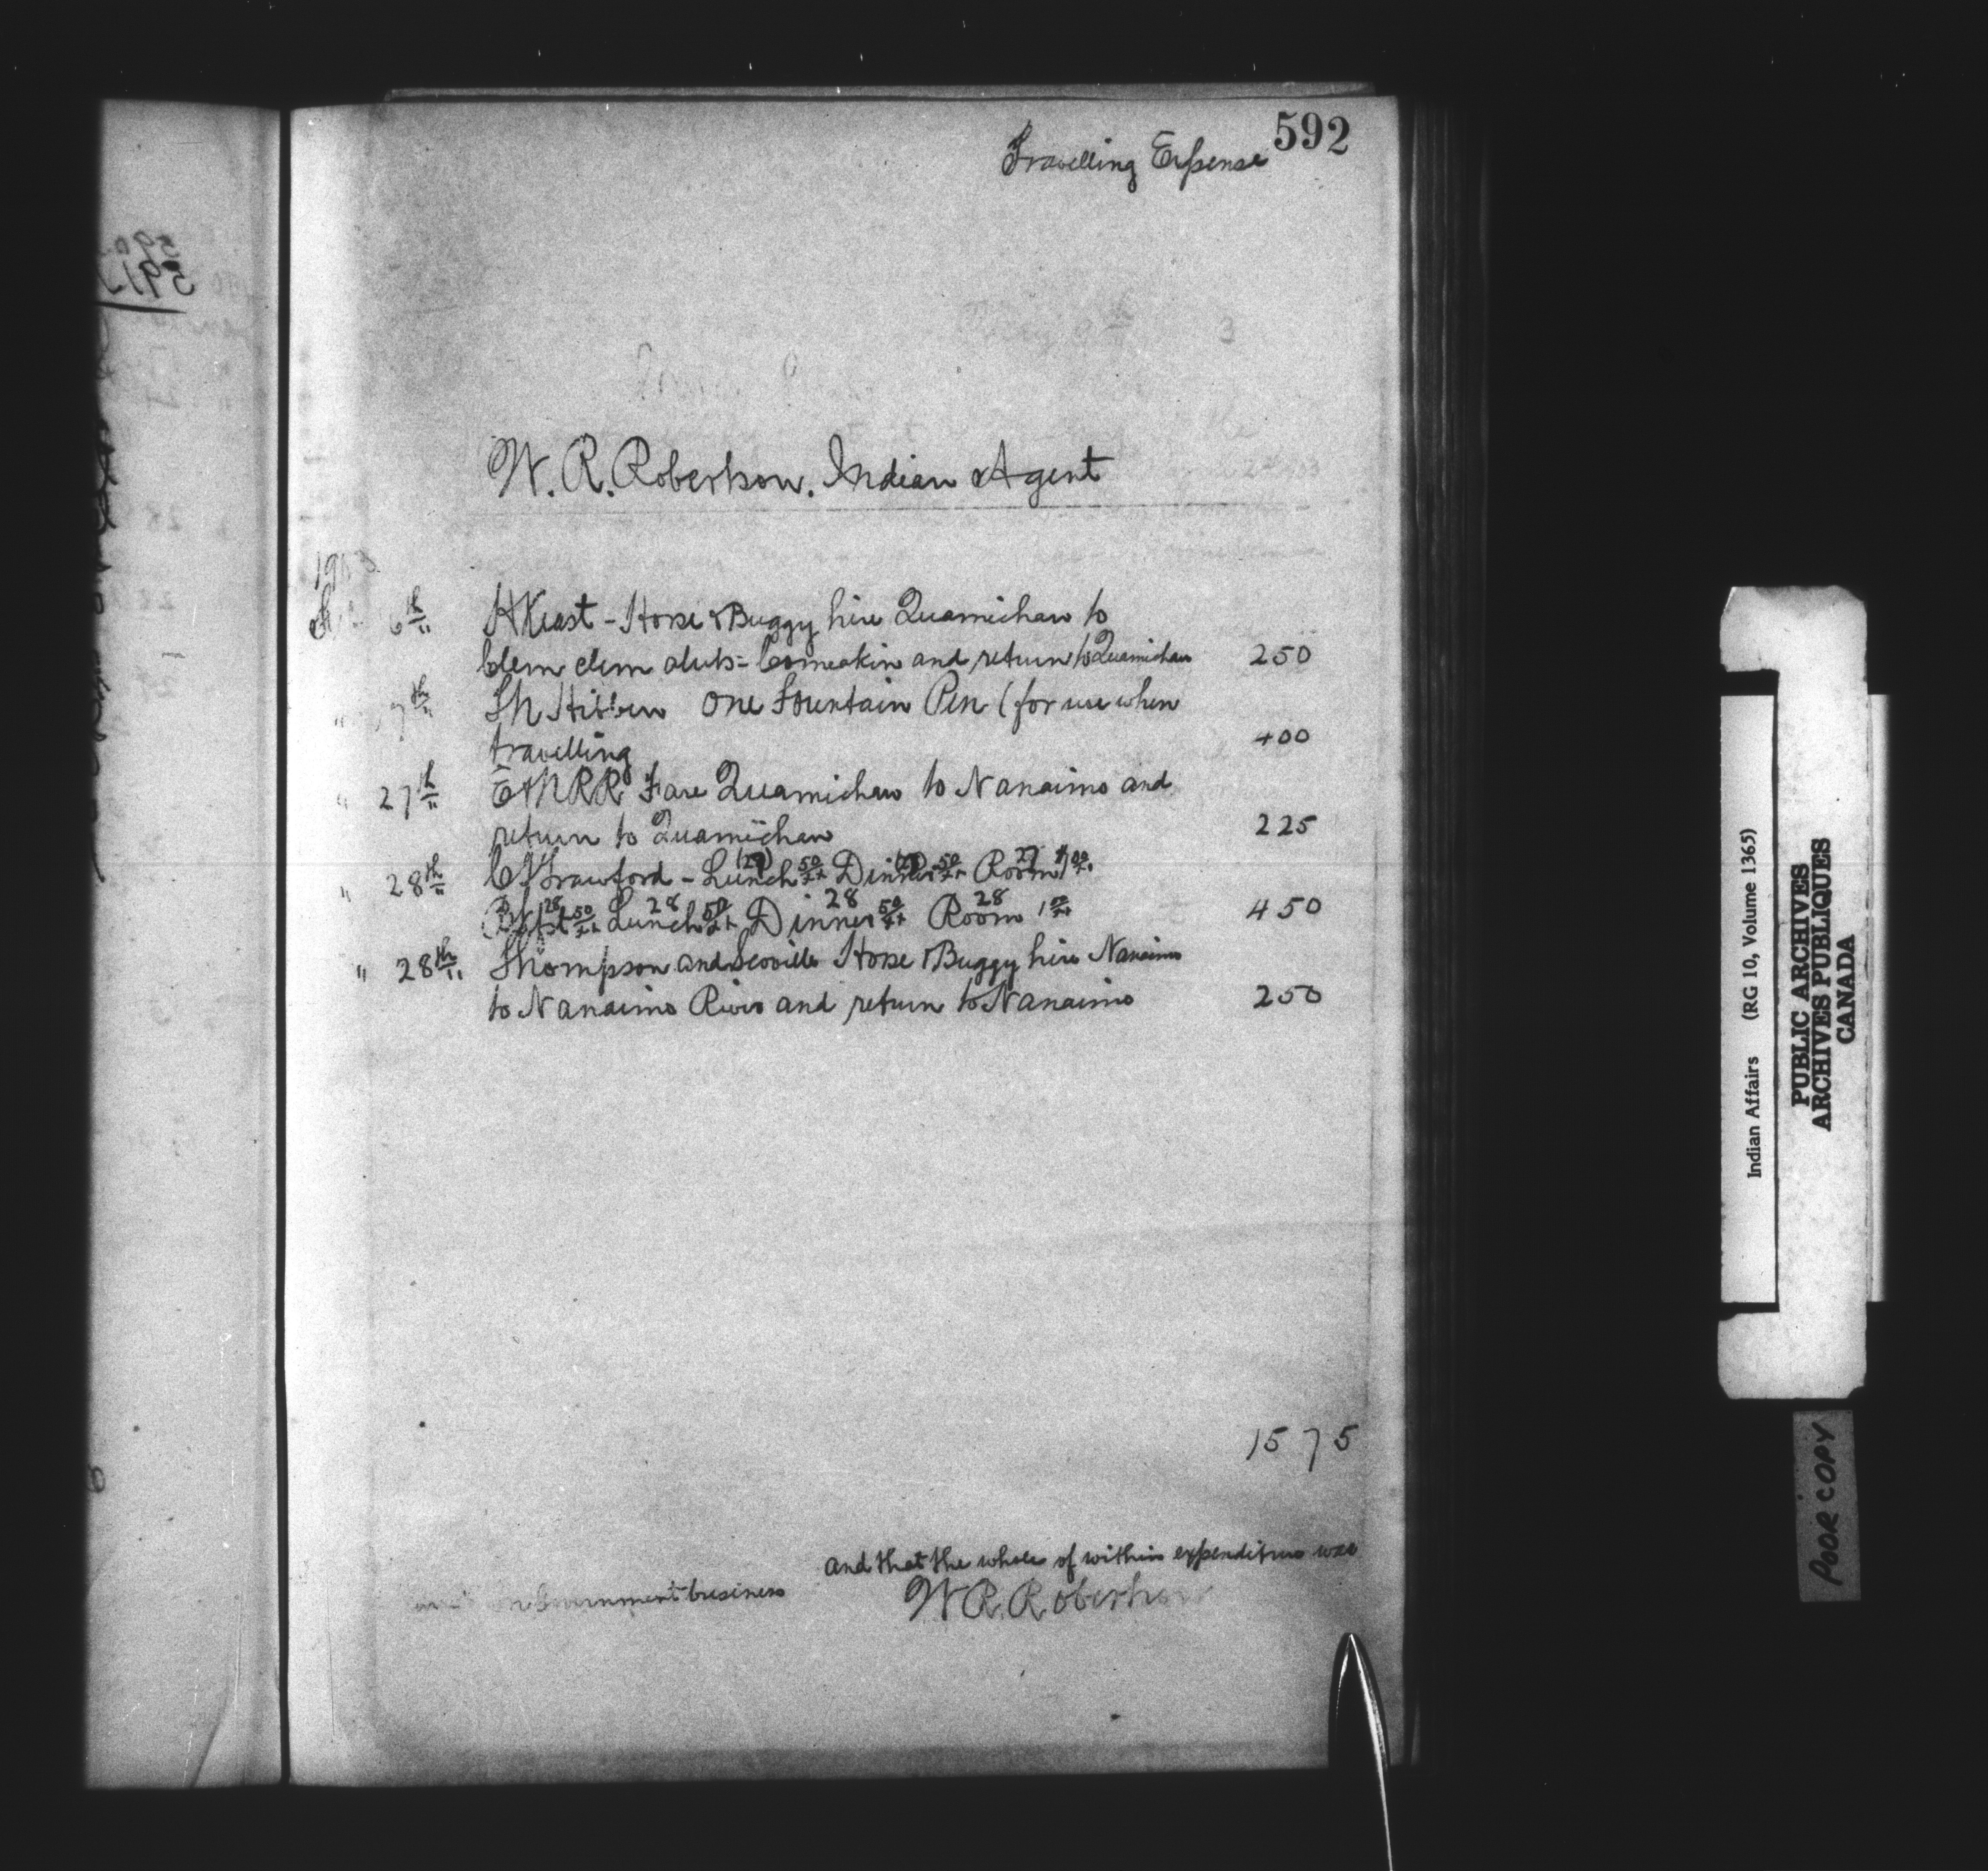 592
Travelling Expense
W. R. Robertson. Indian Agent
1903
6th H Keast - Horse & Buggy hire Quamichan to
Clem clem aluts = Comeakin and return to Quamichan 250
" 7th T N Hibben One Fountain Pen (for use when
travelling 400
" 27th E & N RR Fare Quamichan to Nanaimo and
return to Quamichan 225
" 28th Crawford - Lunch (27) 50 Dinner (27) 50 Room 27 1 00
Bkfst 28 50 Lunch 28 50 Dinner 28 50 Room 28 1 00 450
" 28th Thompson and Scoville Horse & Buggy hire Nanaimo
to Nanaimo River and return to Nanaimo 250
1575
and that the whole of within expenditure was
on Government business
W R Robertson
Indian Affairs (RG 10, Volume 1365)
PUBLIC ARCHIVES
ARCHIVES PUBLIQUES
CANADA
POOR COPY